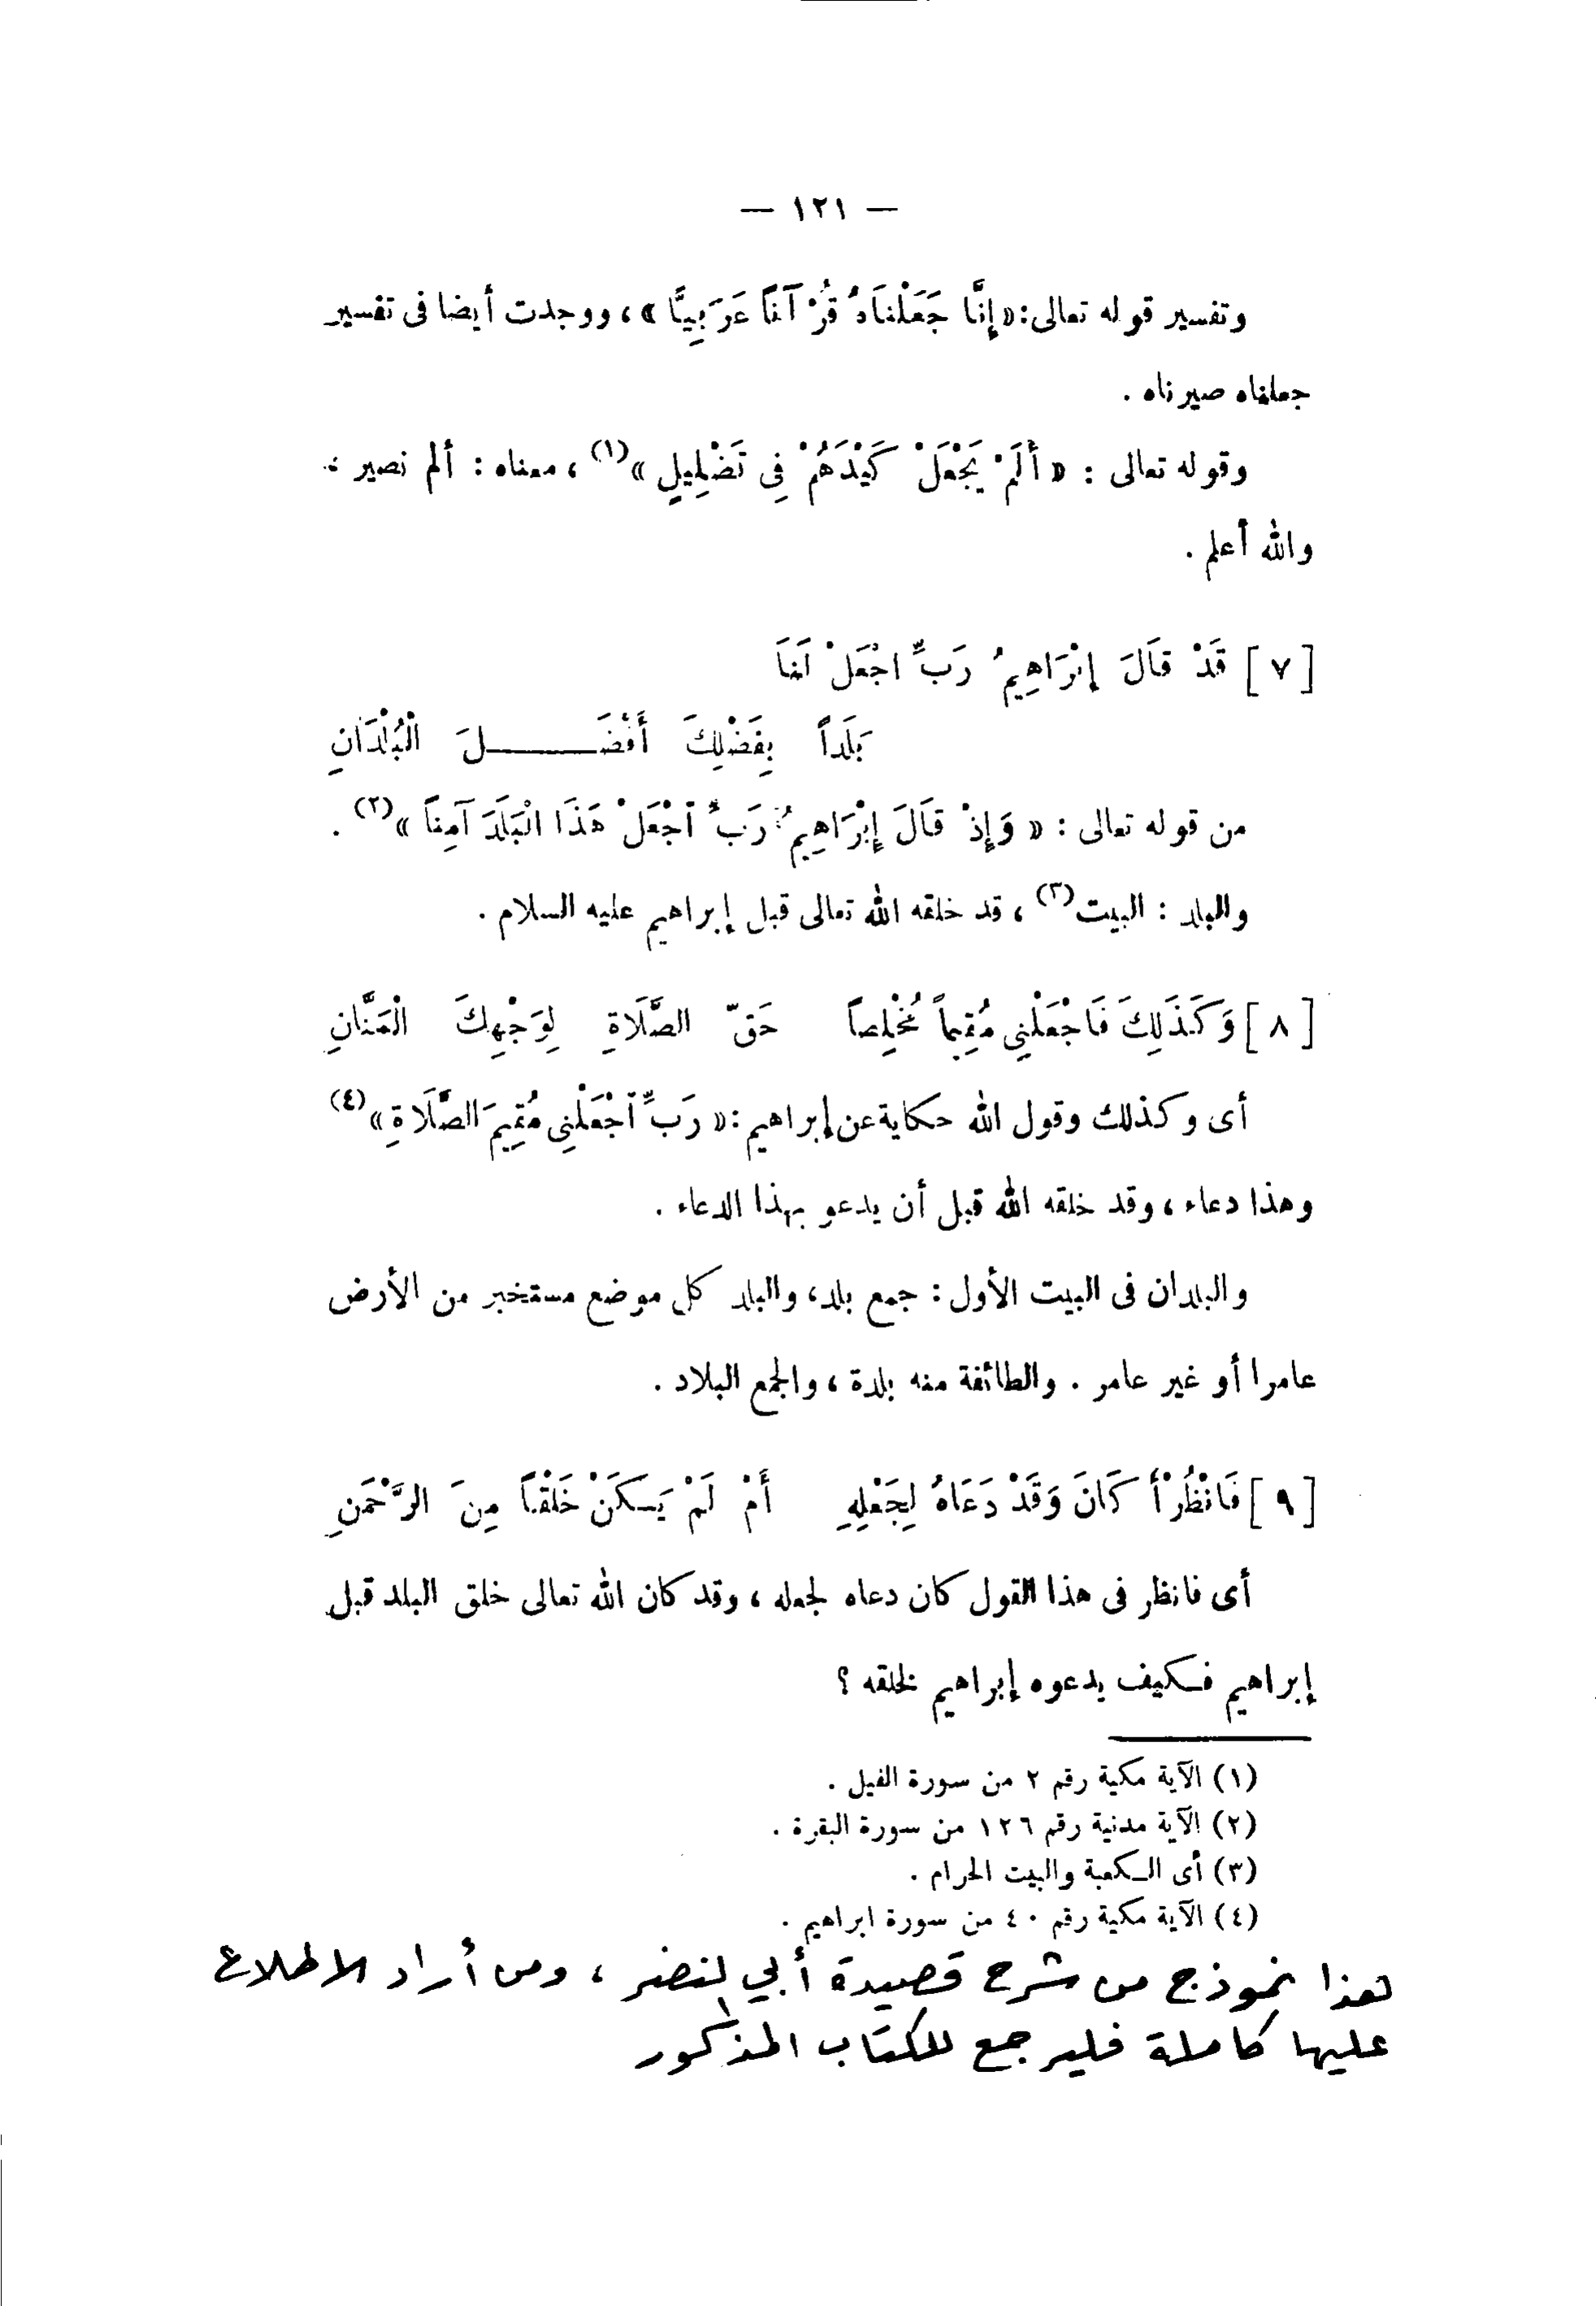 — ١٢١ —
وتفسير قوله تعالى : « إِنَّا جَعَلْنَاهُ قُرْآنًا عَرَبِيًّا » ، ووجدت أيضا فى تفسير
جعلناه صيرناه .
وقوله تعالى : « أَلَمْ يَجْعَلْ كَيْدَهُمْ فِى تَضْلِيلٍ »(١) ، معناه : ألم نصير ،
والله أعلم .
[ ٧ ] قَدْ قَالَ إِبْرَاهِيمُ رَبِّ اجْعَلْ لَنَا
بَلَداً بِفَضْلِكَ أَفْضَـــــلَ الْبُلْدَانِ
من قوله تعالى : « وَإِذْ قَالَ إِبْرَاهِيمُ رَبِّ اجْعَلْ هَذَا الْبَلَدَ آمِناً »(٢) .
والبلد : البيت(٣) ، قد خلقه الله تعالى قبل إبراهيم عليه السلام .
[ ٨ ] وَكَذَلِكَ فَاجْعَلْنِى مُقِيماً مُخْلِصاً حَقّ الصَّلَاةِ لِوَجْهِكَ الْمَنَّانِ
أى وكذلك وقول الله حكاية عن إبراهيم : « رَبِّ اجْعَلْنِى مُقِيمَ الصَّلَاةِ »(٤)
وهذا دعاء ، وقد خلقه الله قبل أن يدعو بهذا الدعاء .
والبلدان فى البيت الأول : جمع بلد، والبلد كل موضع مستخبر من الأرض
عامرا أو غير عامر . والطائفة منه بلدة ، والجمع البلاد .
[ ٩ ] فَانْظُرْ أَكَانَ وَقَدْ دَعَاهُ لِجَعْلِهِ أَمْ لَمْ يَـكَنْ خَلْقاً مِنَ الرَّحْمَنِ
أى فانظر فى هذا القول كان دعاه لجعله ، وقد كان الله تعالى خلق البلد قبل
إبراهيم فـكيف يدعوه إبراهيم لخلقه ؟
(١) الآية مكية رقم ٢ من سورة الفيل .
(٢) الآية مدنية رقم ١٢٦ من سورة البقرة .
(٣) أى الـكعبة والبيت الحرام .
(٤) الآية مكية رقم ٤٠ من سورة ابراهيم .
هذا نموذج من شرح قصيدة أبي النضر ، ومن أراد الاطلاع
عليها كاملة فليرجع للكتاب المذكور